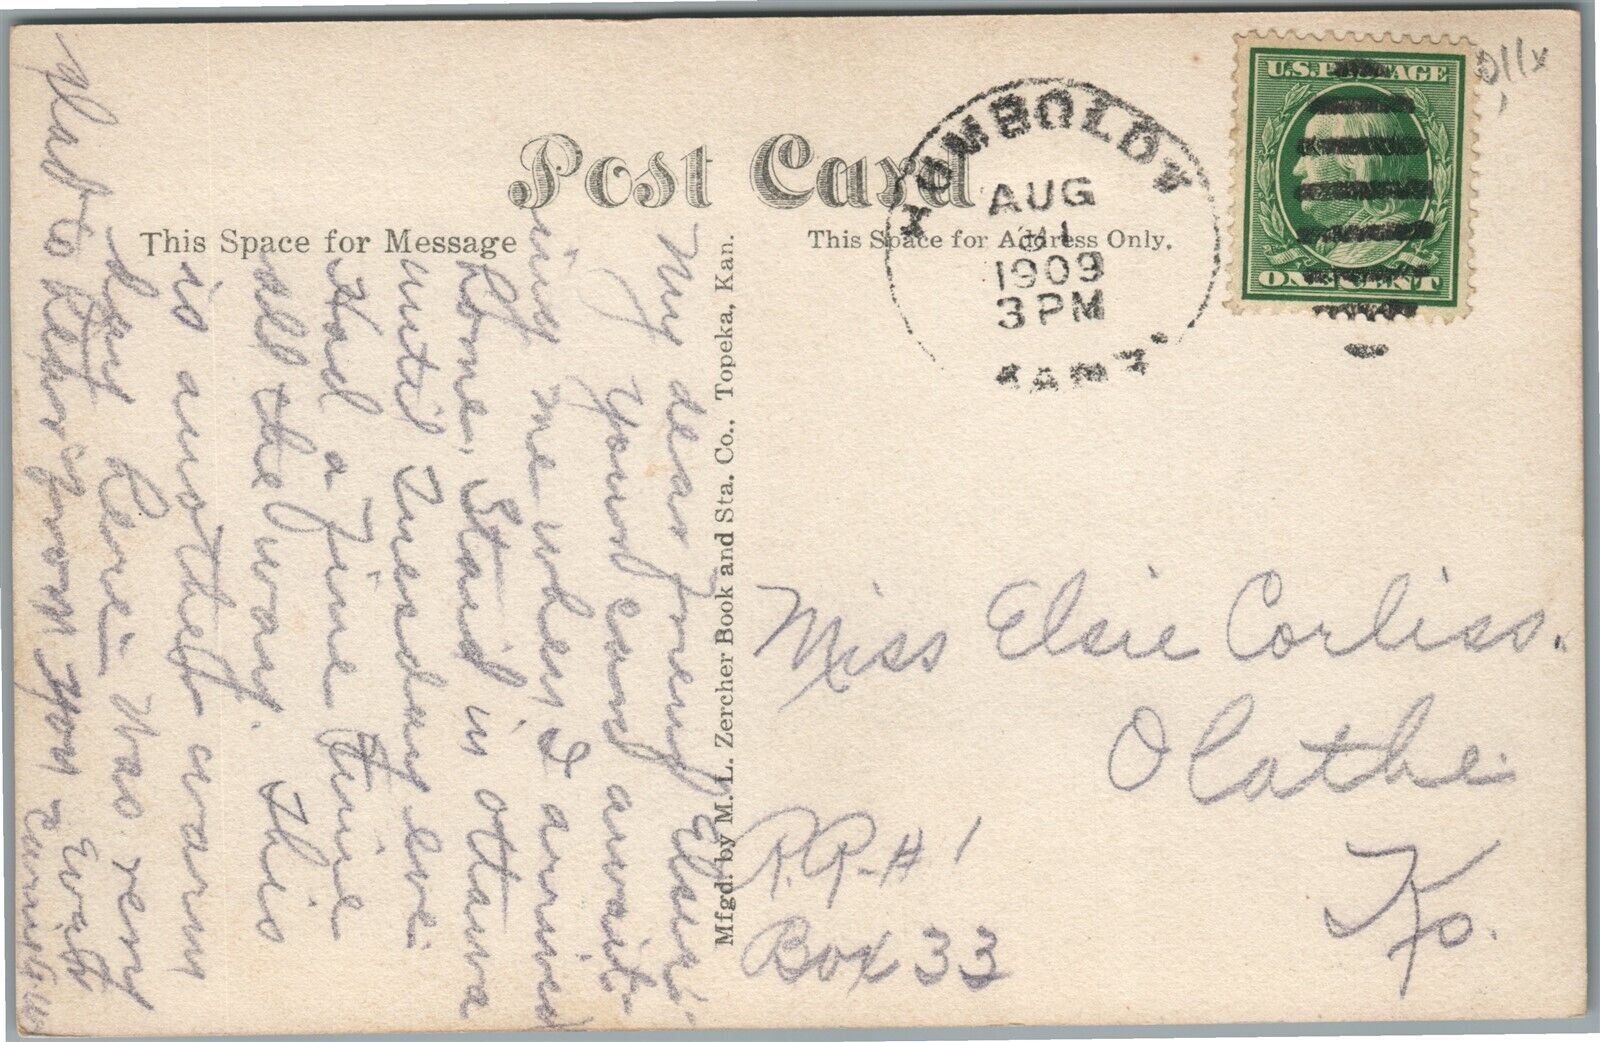 Post Card
This Space for Message
This Space for Address Only.
HUMBOLDT
AUG
1909
3 PM
KANS.
U.S. POSTAGE
ONE CENT
Mfgd. by M. L. Zercher Book and Sta. Co., Topeka, Kan.
My dear friend Elsie:
Your card await-
ing me when I arrived
home, Staid in Ottawa
until Tuesday eve.
Had a fine time
all the way. This
is another warm
day here. Was very
glad to hear from you
Miss Elsie Corliss.
Olathe
Ks.
R.R. #1
Box 33